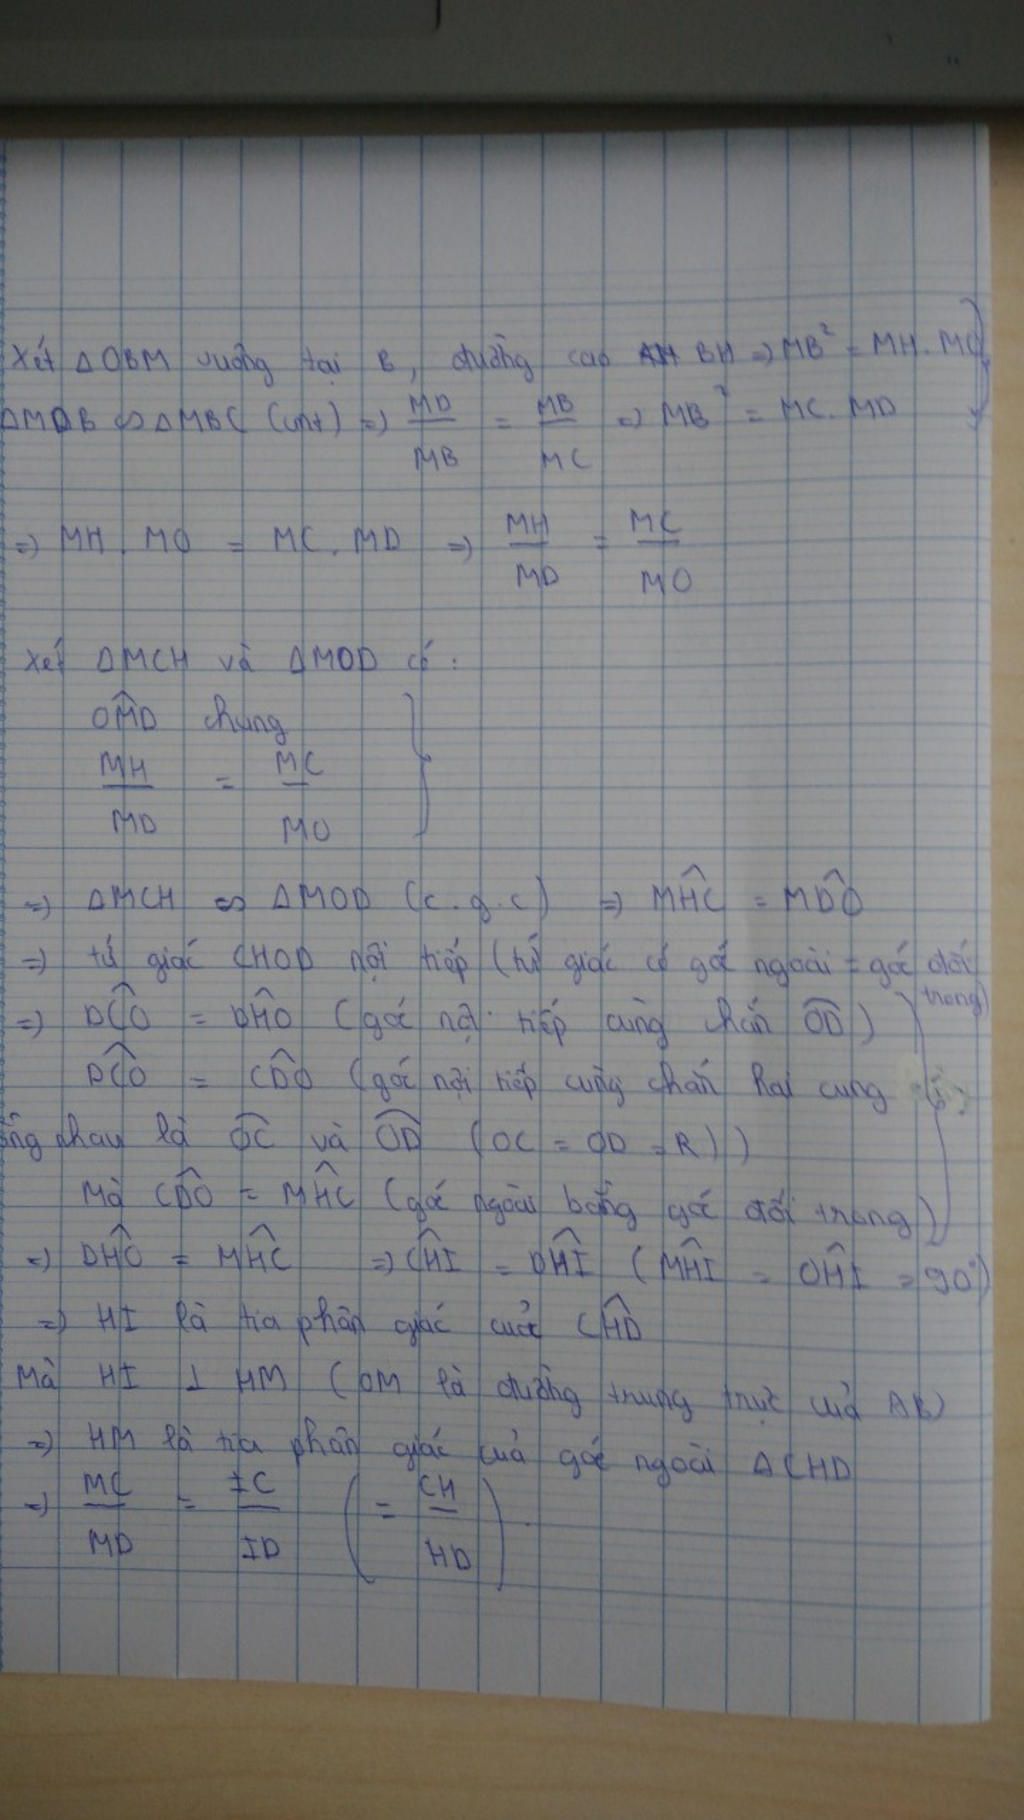 Xét ΔOBM vuông tại B, đường cao BH => MB² = MH. MO
ΔMDB ∽ ΔMBC (cmt) => MD/MB = MB/MC => MB² = MC. MD
=> MH. MO = MC. MD => MH/MD = MC/MO
Xét ΔMCH và ΔMOD có:
OM̂D chung
MH/MD = MC/MO
=> ΔMCH ∽ ΔMOD (c.g.c) => MĤC = MD̂O
=> tứ giác CHOD nội tiếp (tứ giác có góc ngoài = góc đối trong)
=> DĈO = DĤO (góc nội tiếp cùng chắn OD)
DĈO = CD̂O (góc nội tiếp cùng chắn hai cung
ng nhau là OC và OD (OC = OD = R))
Mà CD̂O = MĤC (góc ngoài bằng góc đối trong)
=> DĤO = MĤC => CĤI = DĤI (MĤI = OĤI = 90°)
=> HI là tia phân giác của CĤD
Mà HI ⊥ HM (OM là đường trung trực của AB)
=> HM là tia phân giác của góc ngoài ΔCHD
=> MC/MD = IC/ID (= CH/HD).